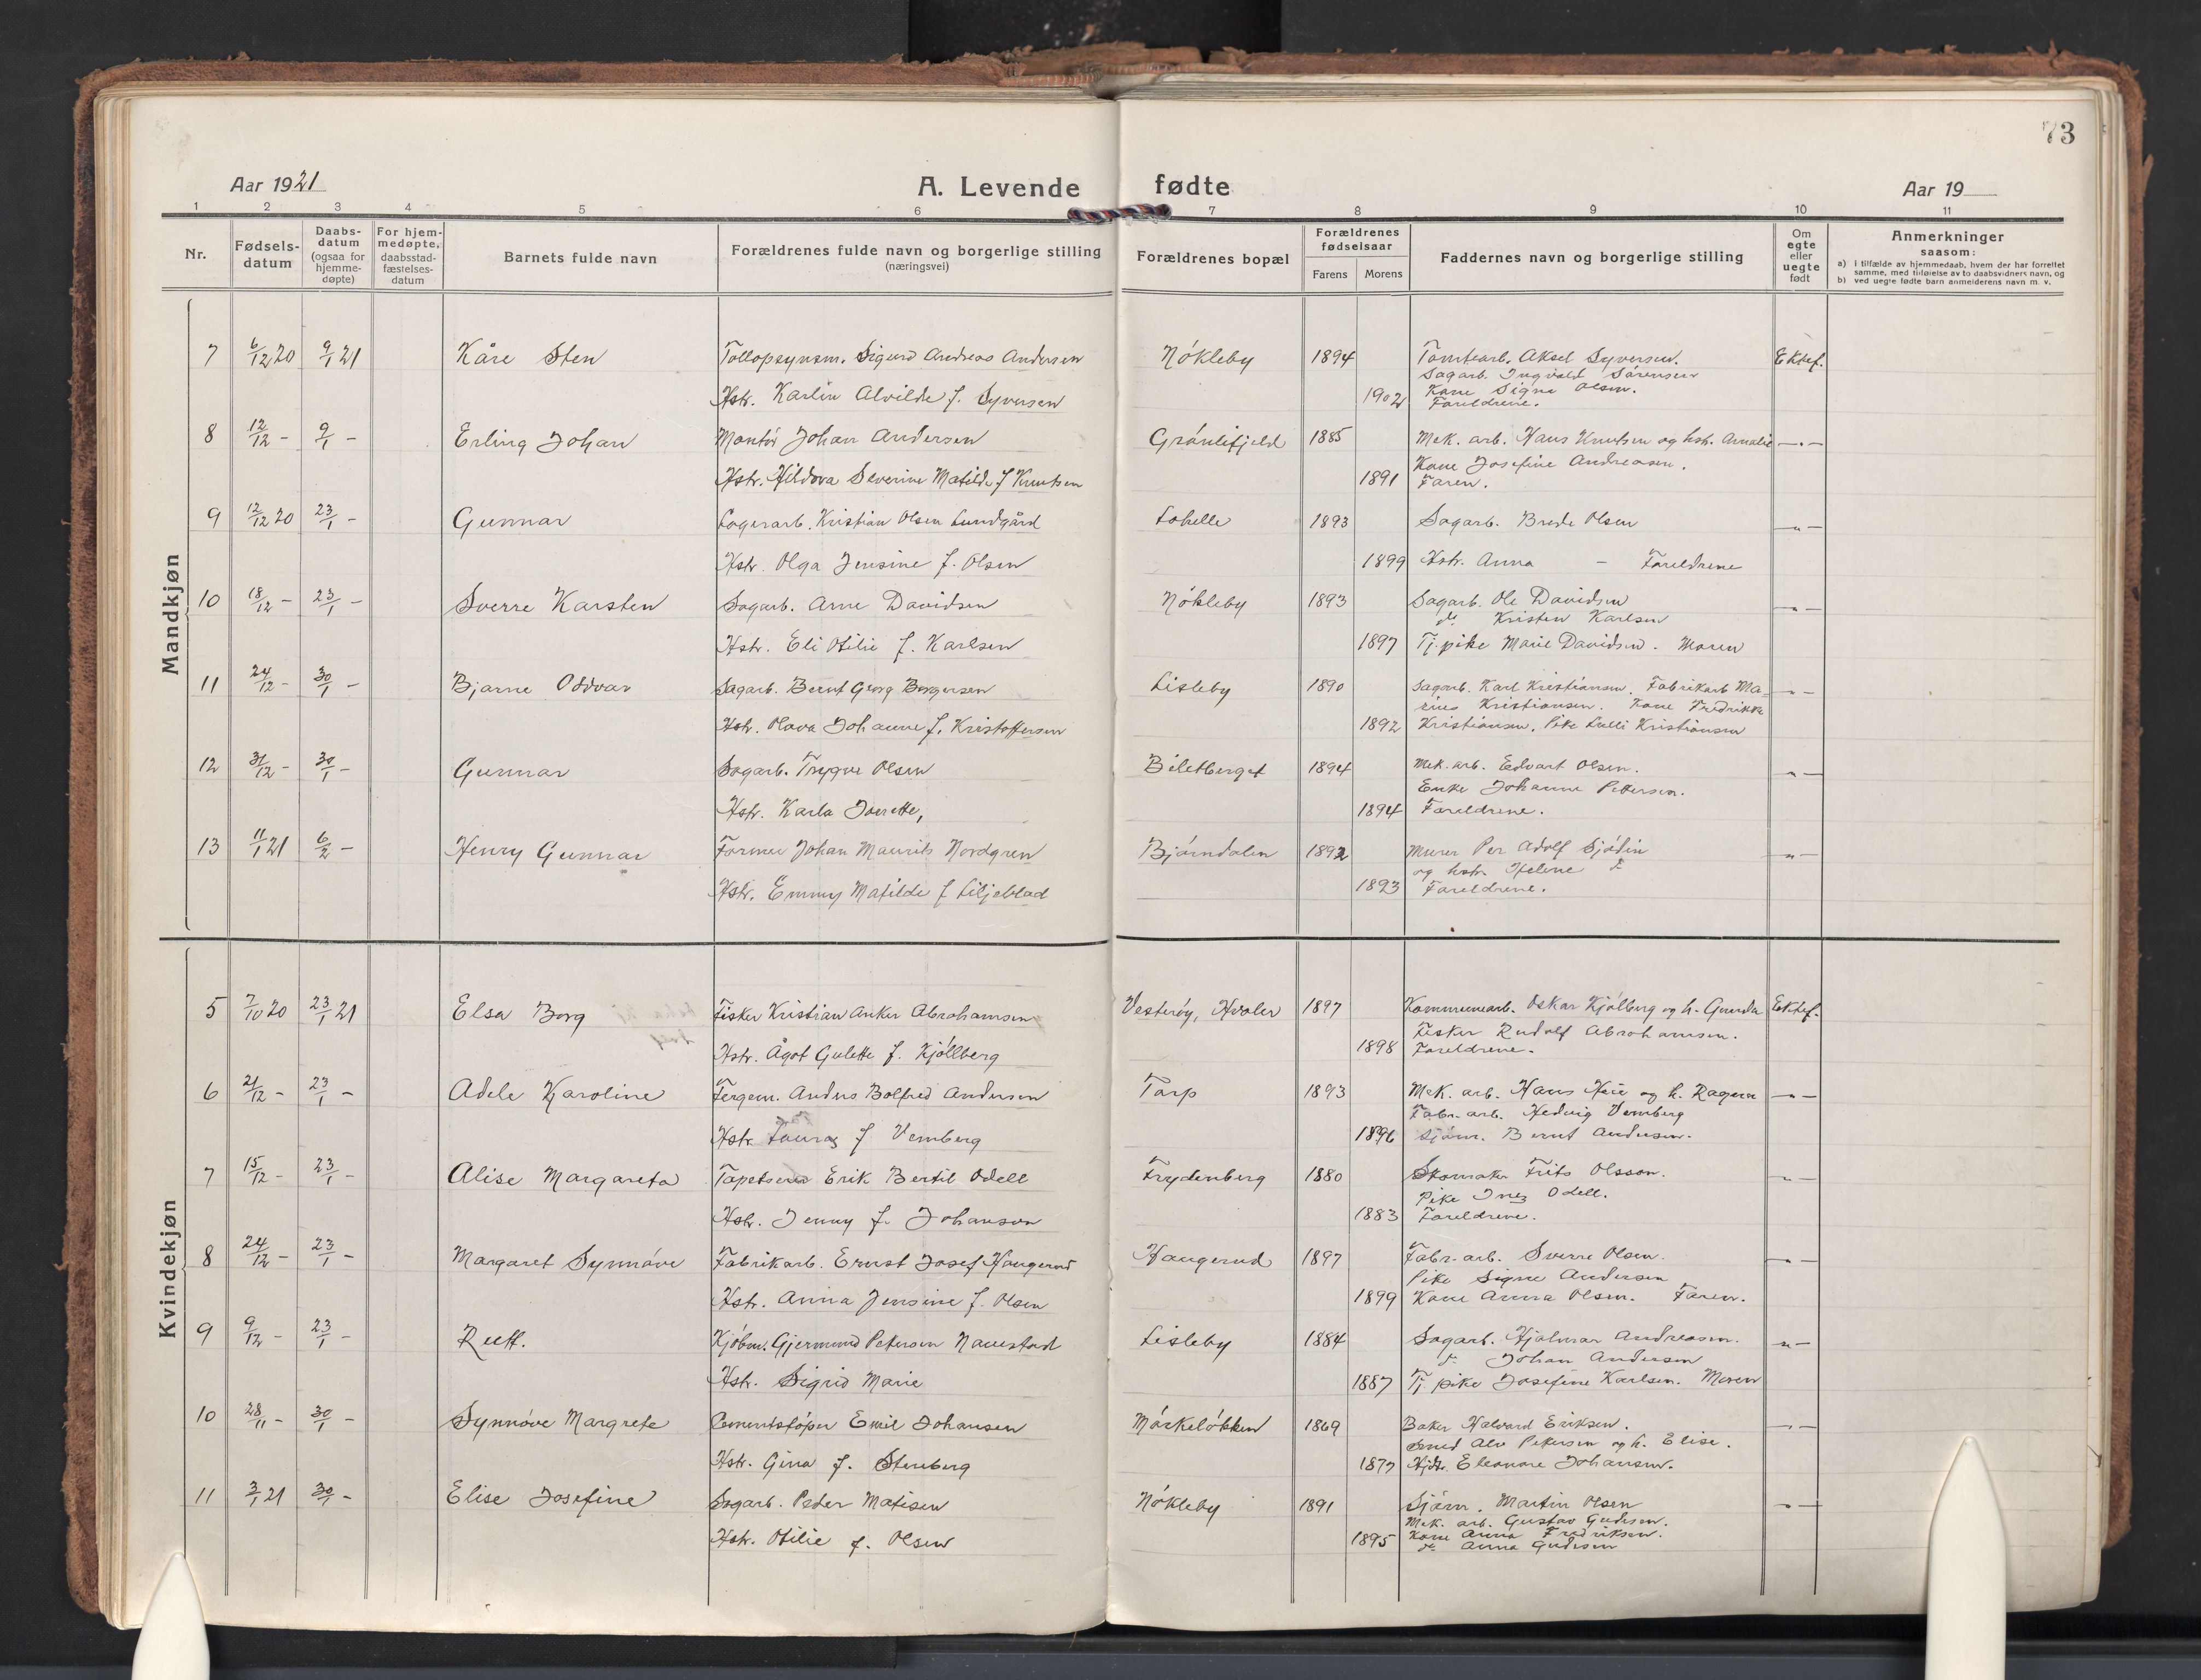 73
Aar 1921
A. Levende fødte
Aar 19
1 2 3 4 5 6 7 8 9 10 11
Nr.
Fødsels-datum
Daabs-datum (ogsaa for hjemme-døpte)
For hjem-medøpte, daabsstad-fæstelses-datum
Barnets fulde navn
Forældrenes fulde navn og borgerlige stilling (næringsvei)
Forældrenes bopæl
Forældrenes fødselsaar
Farens Morens
Faddernes navn og borgerlige stilling
Om egte eller uegte født
Anmerkninger saasom:
a) i tilfælde av hjemmedaab, hvem der har forrettet samme, med tilføielse av to daabsvidners navn, og
b) ved uegte fødte barn anmelderens navn m. v.
Mandkjøn
7 6/12 20 9/1 21 Kåre Sten Tollopsynsm. Sigurd Andreas Andersen Nökleby 1894 Tomtearb. Aksel Syversen. Ektef.
Sagarb. Ingvald Sörensen
Hstr. Karlin Alvilde f. Syversen 1902 Kone Signe Olsen.
Foreldrene.
8 12/12 - 9/1 - Erling Johan Montör Johan Andersen Grönlifjeld 1885 Mek. arb. Hans Knutsen og hstr. Amalie -"-
Kone Josefine Andreasen.
Hstr. Hildora Severine Matilde f Knutsen 1891 Faren.
9 12/12 20 23/1 - Gunnar Lagerarb. Kristian Olsen Lundgård Lahelle 1893 Sagarb. Brede Olsen -"-
Hstr. Olga Jensine f. Olsen 1899 Hstr. Anna - Foreldrene
10 18/12 - 23/1 - Sverre Karsten Sagarb. Arne Davidsen Nökleby 1893 Sagarb. Ole Davidsen -"-
do Kristen Karlsen
Hstr. Eli Otilie f. Karlsen 1897 Tj.pike Marie Davidsen. Moren
11 24/12 - 30/1 - Bjarne Oddvar Sagarb. Bernt Georg Borgersen Lisleby 1890 Sagarb. Karl Kristiansen. Fabrikarb Ma- -"-
rius Kristiansen. Kone Fredrikke
Hstr. Olava Johanne f. Kristoffersen 1892 Kristiansen. Pike Lulli Kristiansen
12 31/12 - 30/1 - Gunnar Sagarb. Trygve Olsen Biletberget 1894 Mek. arb. Edvart Olsen. -"-
Enke Johanne Pettersen.
Hstr. Karla Iverette, 1894 Foreldrene.
13 11/1 21 6/2 - Henry Gunnar Former Johan Maurits Nordgren Bjørndalen 1892 Murer Per Adolf Sjödin -"-
og hstr. Helene do
Hstr. Emmy Matilde f Liljeblad 1893 Foreldrene.
Kvindekjøn
5 7/10 20 23/1 21 Elsa Borg Fisker Kristian Anker Abrahamsen Vesteröy, Hvaler 1897 Kommunearb. Oskar Kjölberg og h. Gunda Ektef.
Fisker Rudolf Abrahamsen.
Hstr. Ågot Gulette f. Kjöllberg 1898 Foreldrene.
6 21/12 - 23/1 - Adele Karoline Fergem. Anders Bolfred Andersen Torp 1893 Mek. arb. Hans Heie og h. Ragna -"-
Fabr. arb. Hedvig Vemberg
Hstr. Laura f Vemberg 1896 Sjöm. Bernt Andersen.
7 15/12 - 23/1 - Alise Margareta Tapetserer Erik Bertil Odell Frydenberg 1880 Skomaker Frits Olsson. -"-
Pike Inez Odell.
Hstr. Jenny f. Johanson 1883 Foreldrene.
8 24/12 - 23/1 - Margaret Synnöve Fabrikarb. Ernst Josef Haugerud Haugerud 1897 Fabr. arb. Sverre Olsen. -"-
Pike Signe Andersen
Hstr. Anna Jensine f. Olsen 1899 Kone Anna Olsen. Faren.
9 9/12 - 23/1 - Rutt. Kjöbm. Gjermund Petersen Naustad Lisleby 1884 Sagarb. Hjalmar Andreasen. -"-
do Johan Andersen
Hstr. Sigrid Marie 1887 Tj pike Josefine Karlsen. Moren
10 28/11 - 30/1 - Synnöve Margrete Cementstöper Emil Johansen Mörkelökken 1869 Baker Halvard Eriksen. -"-
Smed Alv Petersen og h. Elise.
Hstr. Gina f. Stenberg 1877 Hjdtr. Eleonore Johansen.
11 3/1 21 30/1 - Elise Josefine Sagarb. Peder Matisen Nökleby 1891 Sjöm. Martin Olsen -"-
Mek. arb. Gustav Gudesen.
Hstr. Otilie f. Olsen 1895 Kone Anna Fredriksen.
do Anna Gudesen